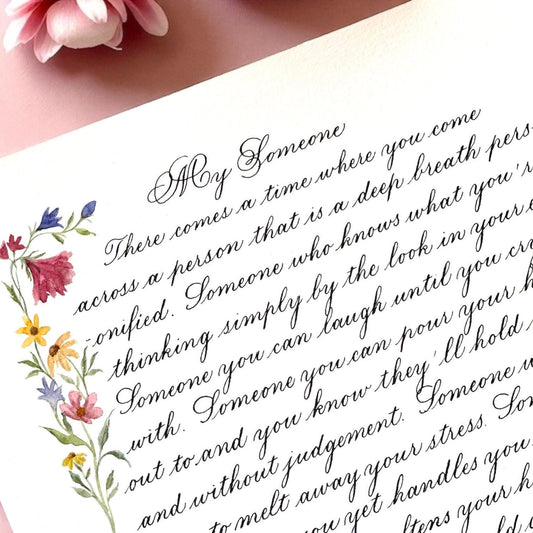 My Someone
There comes a time where you come
across a person that is a deep breath pers
-onified. Someone who knows what you'r
thinking simply by the look in your e
Someone you can laugh until you cry
with. Someone you can pour your h
out to and you know they'll hold
and without judgement. Someone w
to melt away your stress. Som
ou yet handles you
ftens your h
ld u